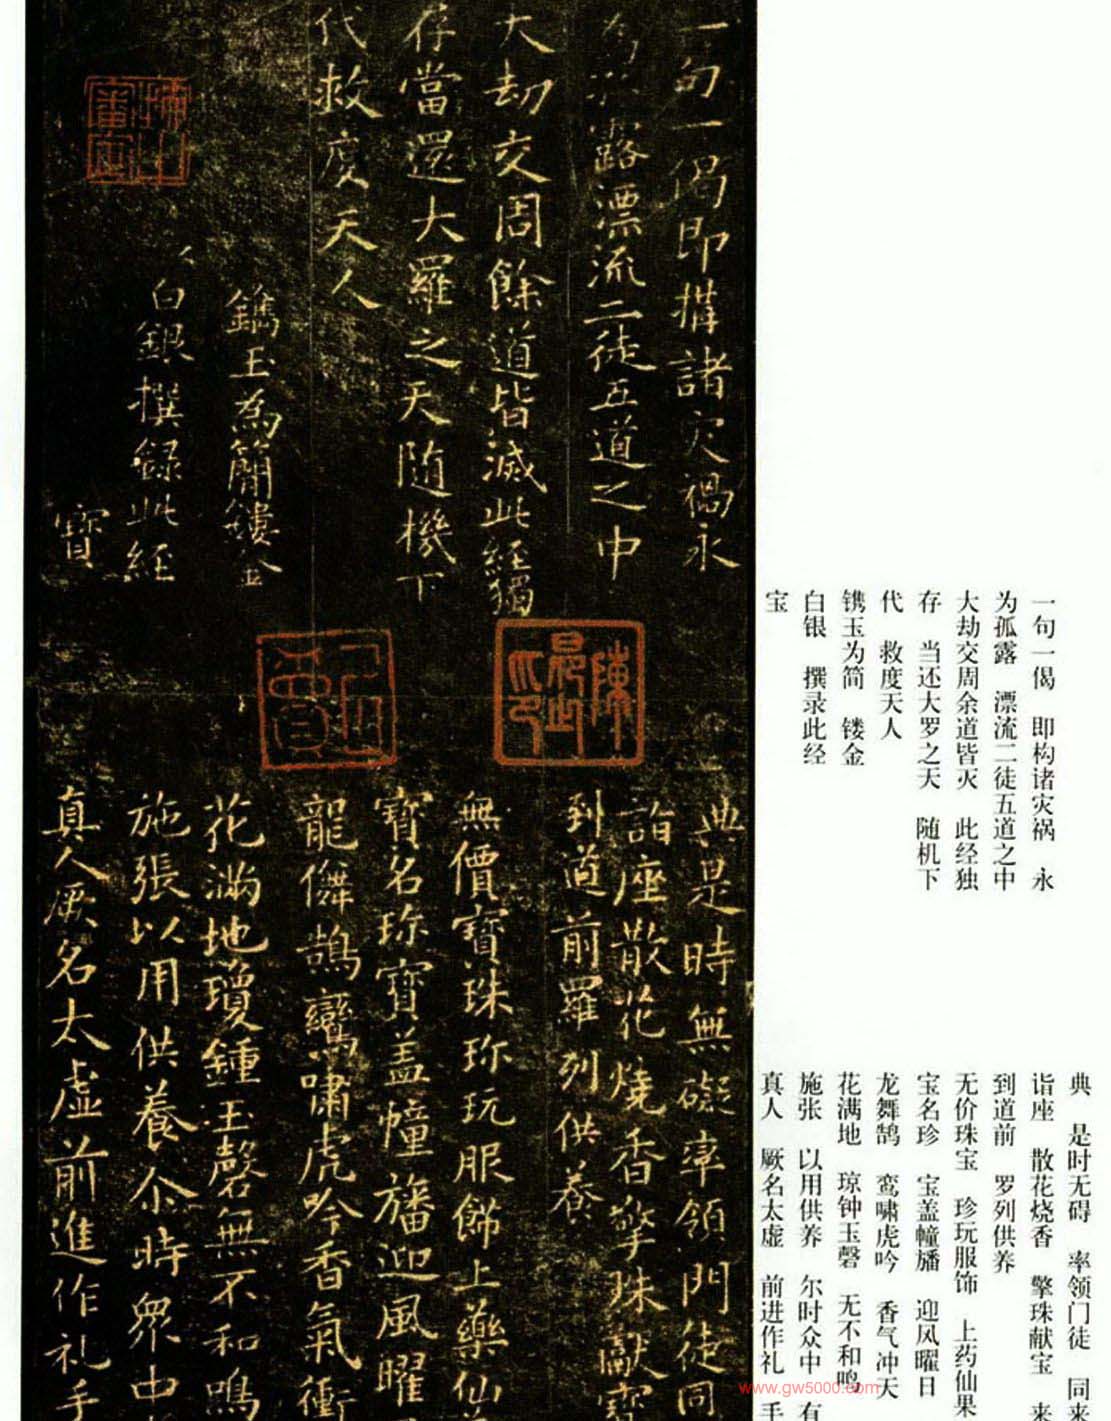 一句一偈即構諸灾禍永
為孤露漂流二徒五道之中
大劫交周餘道皆滅此經獨
存當還大羅之天随機下
代救度天人
鐫玉為簡鏤金
白銀撰録此経
寶
典是時無礙率領門徒同
詣座散花燒香擎珠獻寶
到道前羅列供養
無價寶珠珎玩服飾上藥仙
寶名珎寶盖幢旛迎風曜
龍儛鵠鸞嘯虎吟香氣衝
花滿地瓊鍾玉磬無不和鳴
施張以用供養尒時衆中
真人厥名太虛前進作礼手
一句一偈 即构诸灾祸 永
为孤露 漂流二徒五道之中
大劫交周余道皆灭 此经独
存 当还大罗之天 随机下
代 救度天人
镌玉为简 镂金
白银 撰录此经
宝
典 是时无碍 率领门徒 同来
诣座 散花烧香 擎珠献宝 来
到道前 罗列供养
无价珠宝 珍玩服饰 上药仙果
宝名珍 宝盖幢旛 迎风曜日
龙舞鹄 鸾啸虎吟 香气冲天
花满地 琼钟玉磬 无不和鸣
施张 以用供养 尔时众中 有
真人 厥名太虚 前进作礼 手
www.gw5000.com